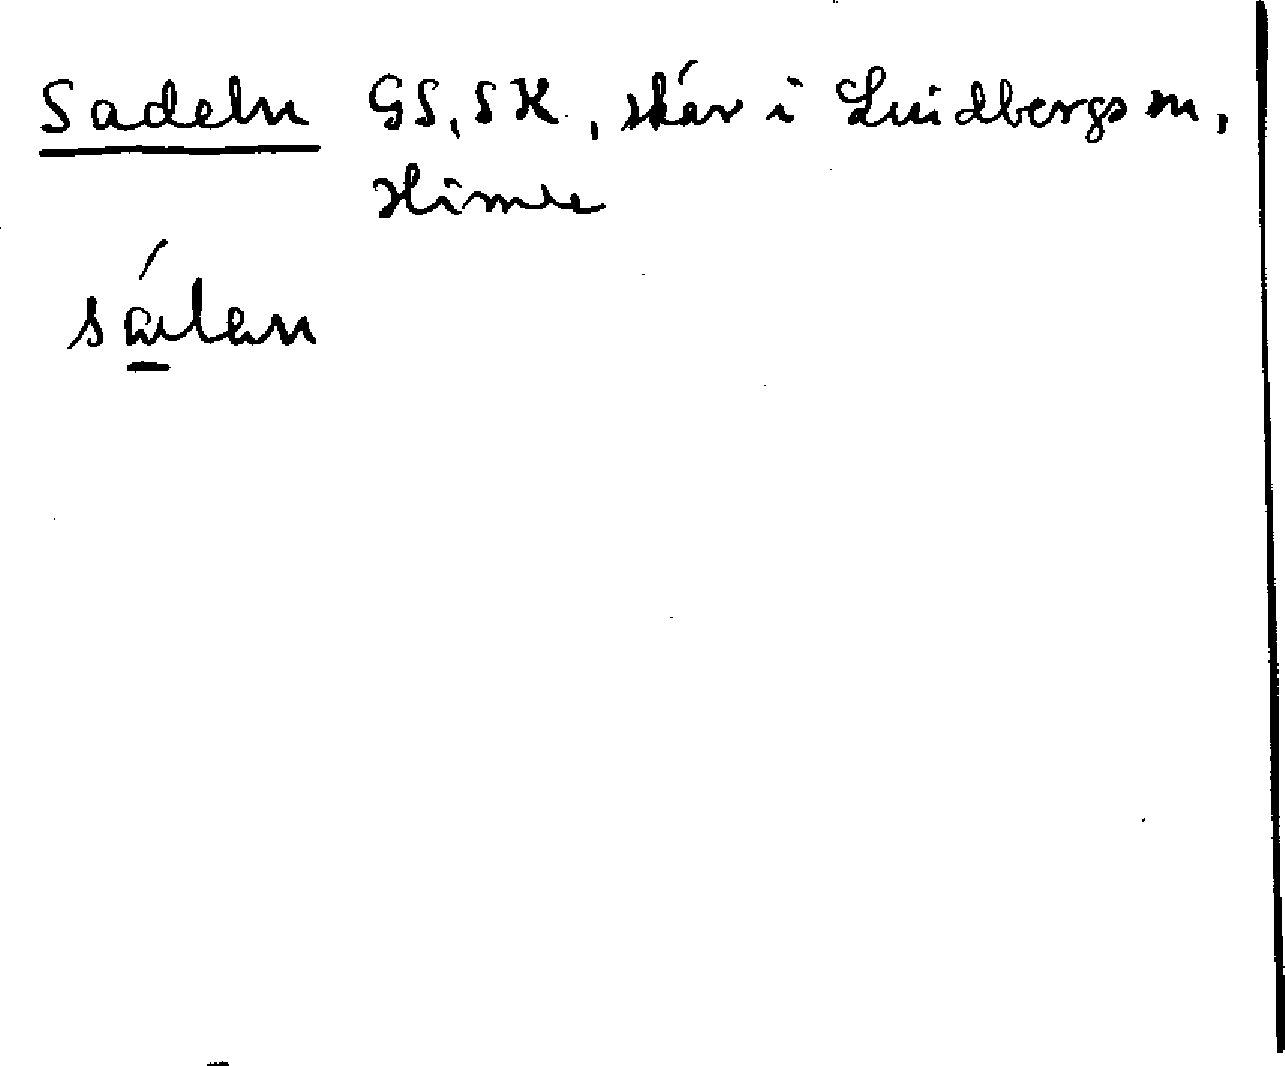 Sadeln GS, SK., skär i Lindbergs sn,
Himle
sálan